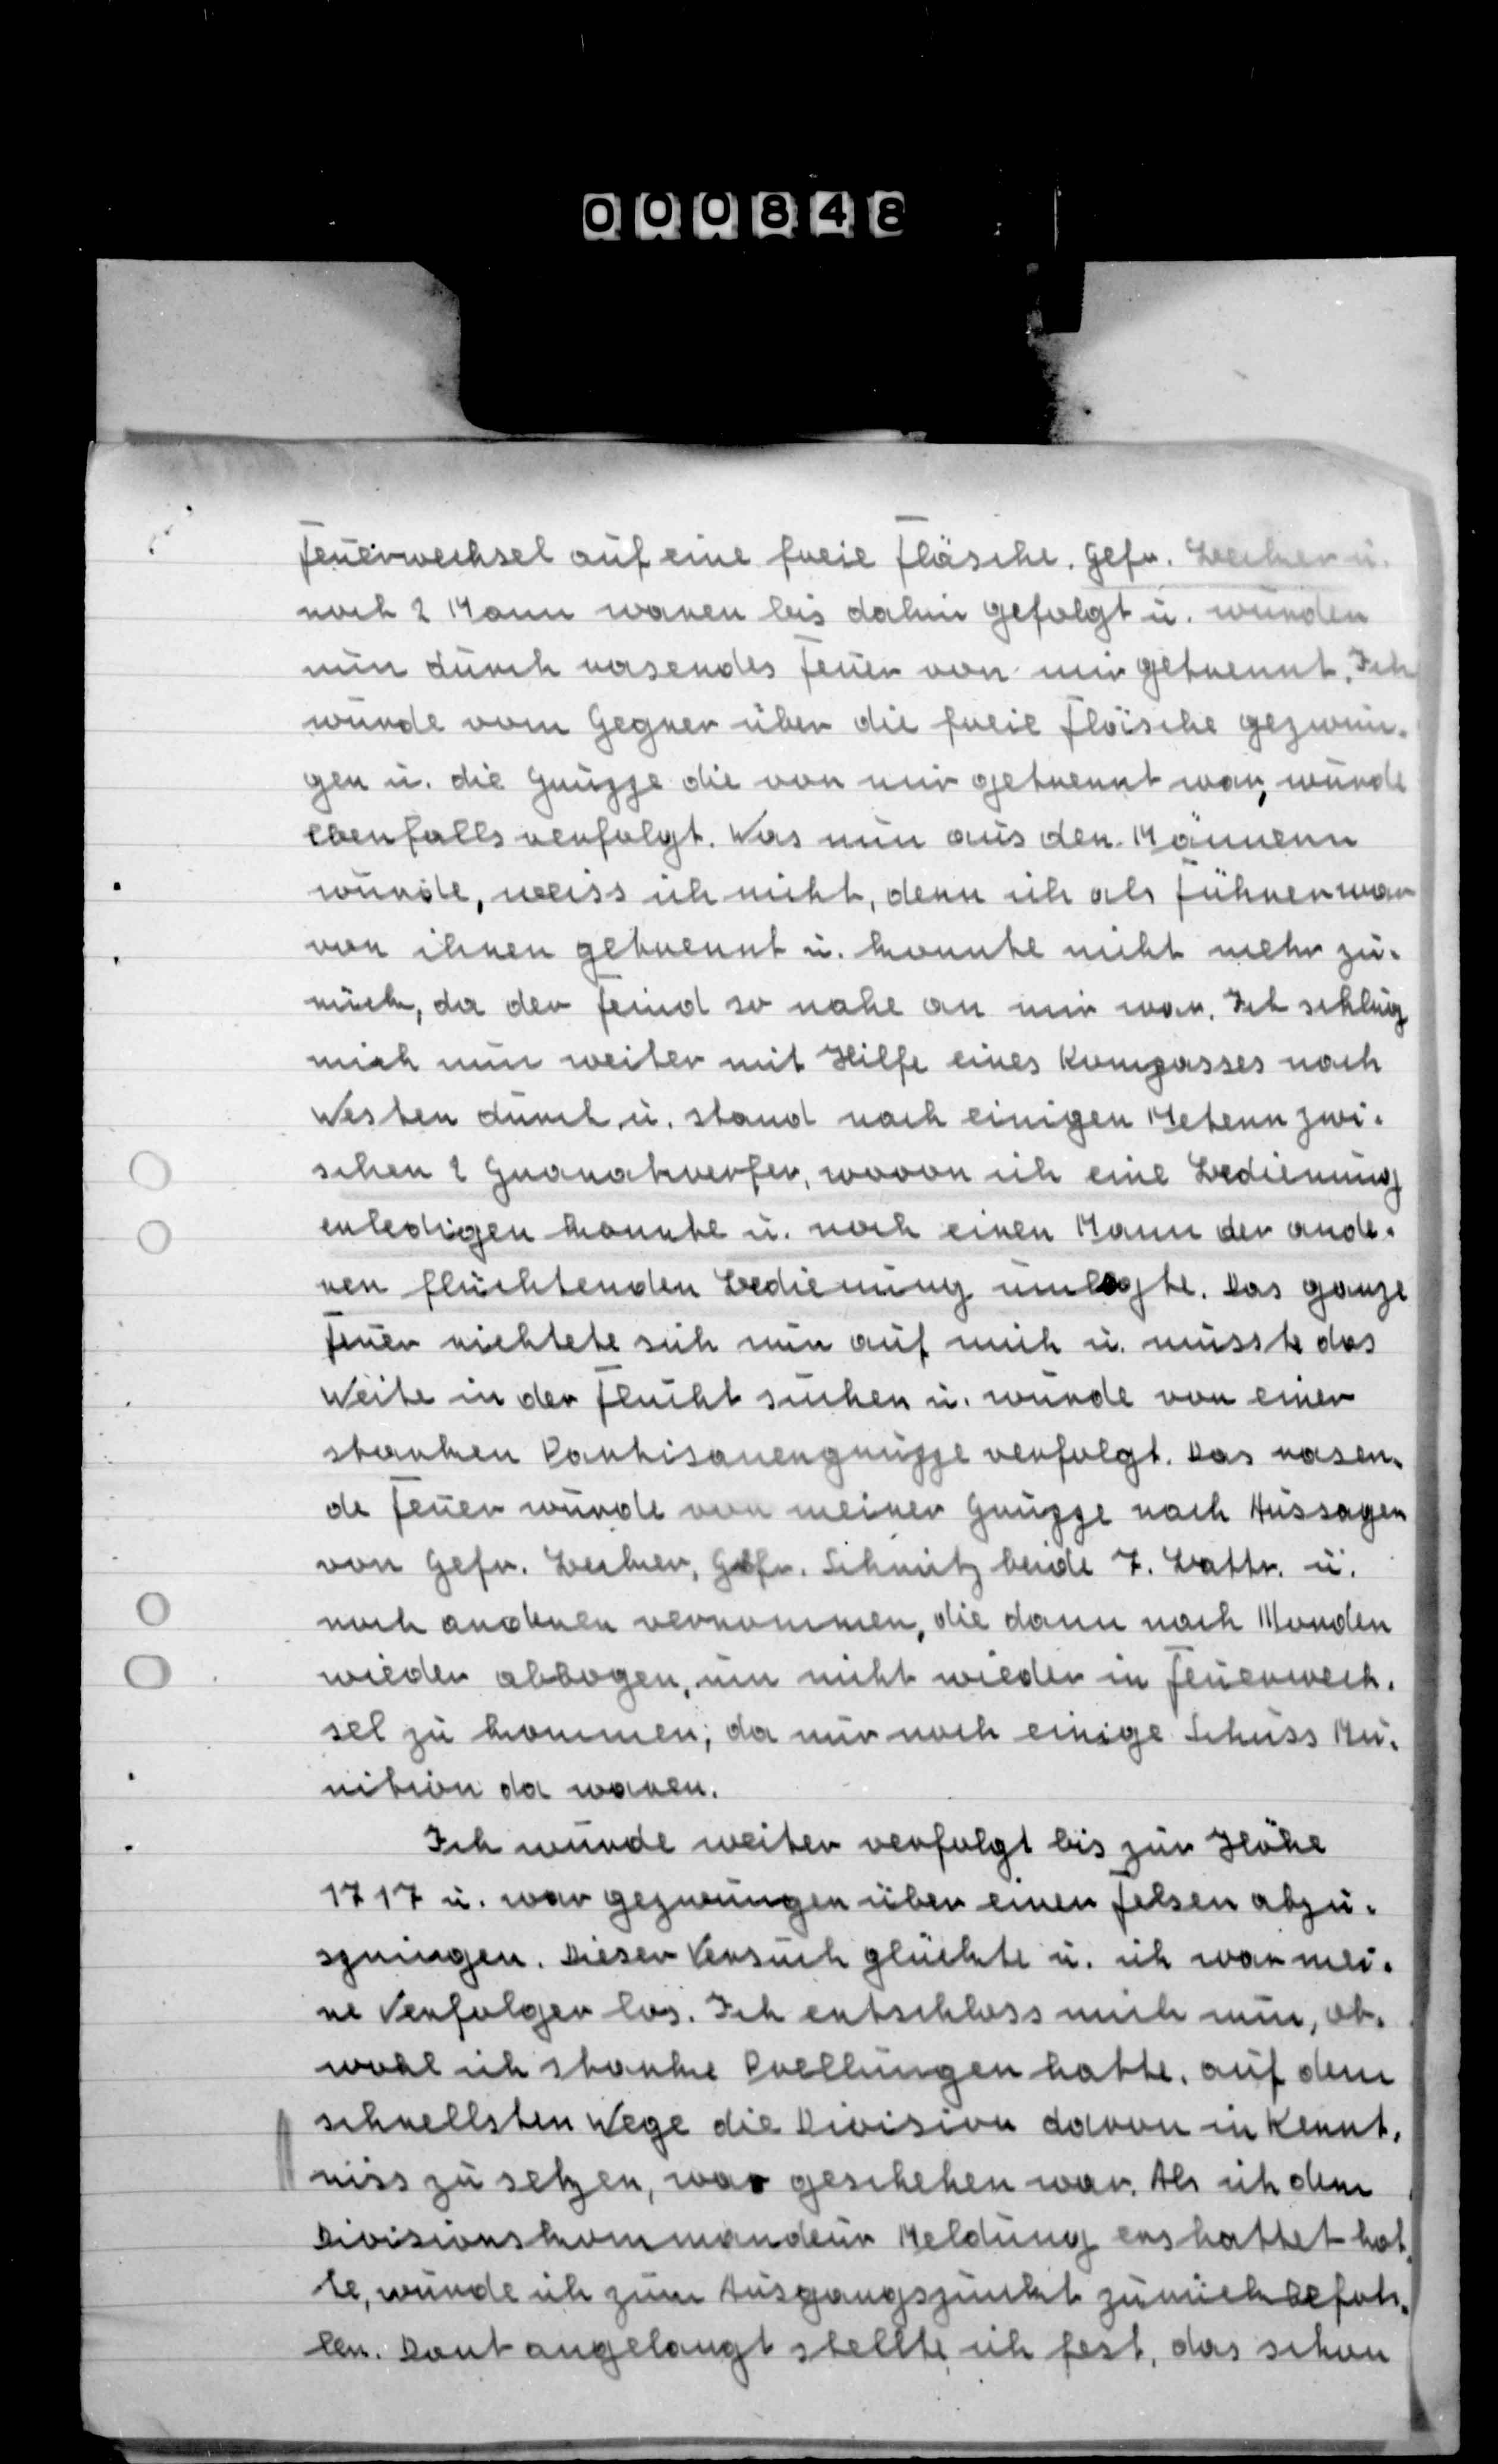 000848
Feuerwechsel auf eine freie Fläsche. Gefr. Becker u.
noch 2 Mann waren bis dahin gefolgt u. wurden
nun durch rasendes Feuer von mir getrennt. Ich
wurde vom Gegner über die freie Fläsche gezwun-
gen u. die Gruppe die von mir getrennt war, wurde
ebenfalls verfolgt. Was nun aus den Männern
wurde, weiss ich nicht, denn ich als Führer war
von ihnen getrennt u. konnte nicht mehr zu-
rück, da der Feind so nahe an mir war. Ich schlug
mich nun weiter mit Hilfe eines Kompasses nach
Westen durch u. stand nach einigen Metern zwi-
schen 2 Granatwerfer, wovon ich eine Bedienung
erledigen konnte u. noch einen Mann der ande-
ren flüchtenden Bedienung umlegte. Das ganze
Feuer richtete sich nun auf mich u. musste das
Weite in der Flucht suchen u. wurde von einer
starken Partisanengruppe verfolgt. Das rasen-
de Feuer wurde von meiner Gruppe nach Aussagen
von Gefr. Becker, Gefr. Schmitz beide 7. Battr. u.
noch anderen vernommen, die dann nach Norden
wieder abbogen, um nicht wieder in Feuerwech-
sel zu kommen; da nur noch einige Schuss Mu-
nition da waren.
Ich wurde weiter verfolgt bis zur Höhe
1717 u. war gezwungen über einen Felsen abzu-
springen. Dieser Versuch glückte u. ich war mei-
ne Verfolger los. Ich entschloss mich nun, ob-
wohl ich starke Prellungen hatte, auf dem
schnellsten Wege die Division davon in Kennt-
niss zu setzen, was geschehen war. Als ich dem
Divisionskommandeur Meldung erstattet hat-
te, wurde ich zum Ausgangspunkt zurückbefoh-
len. Dort angelangt stellte ich fest, das schon